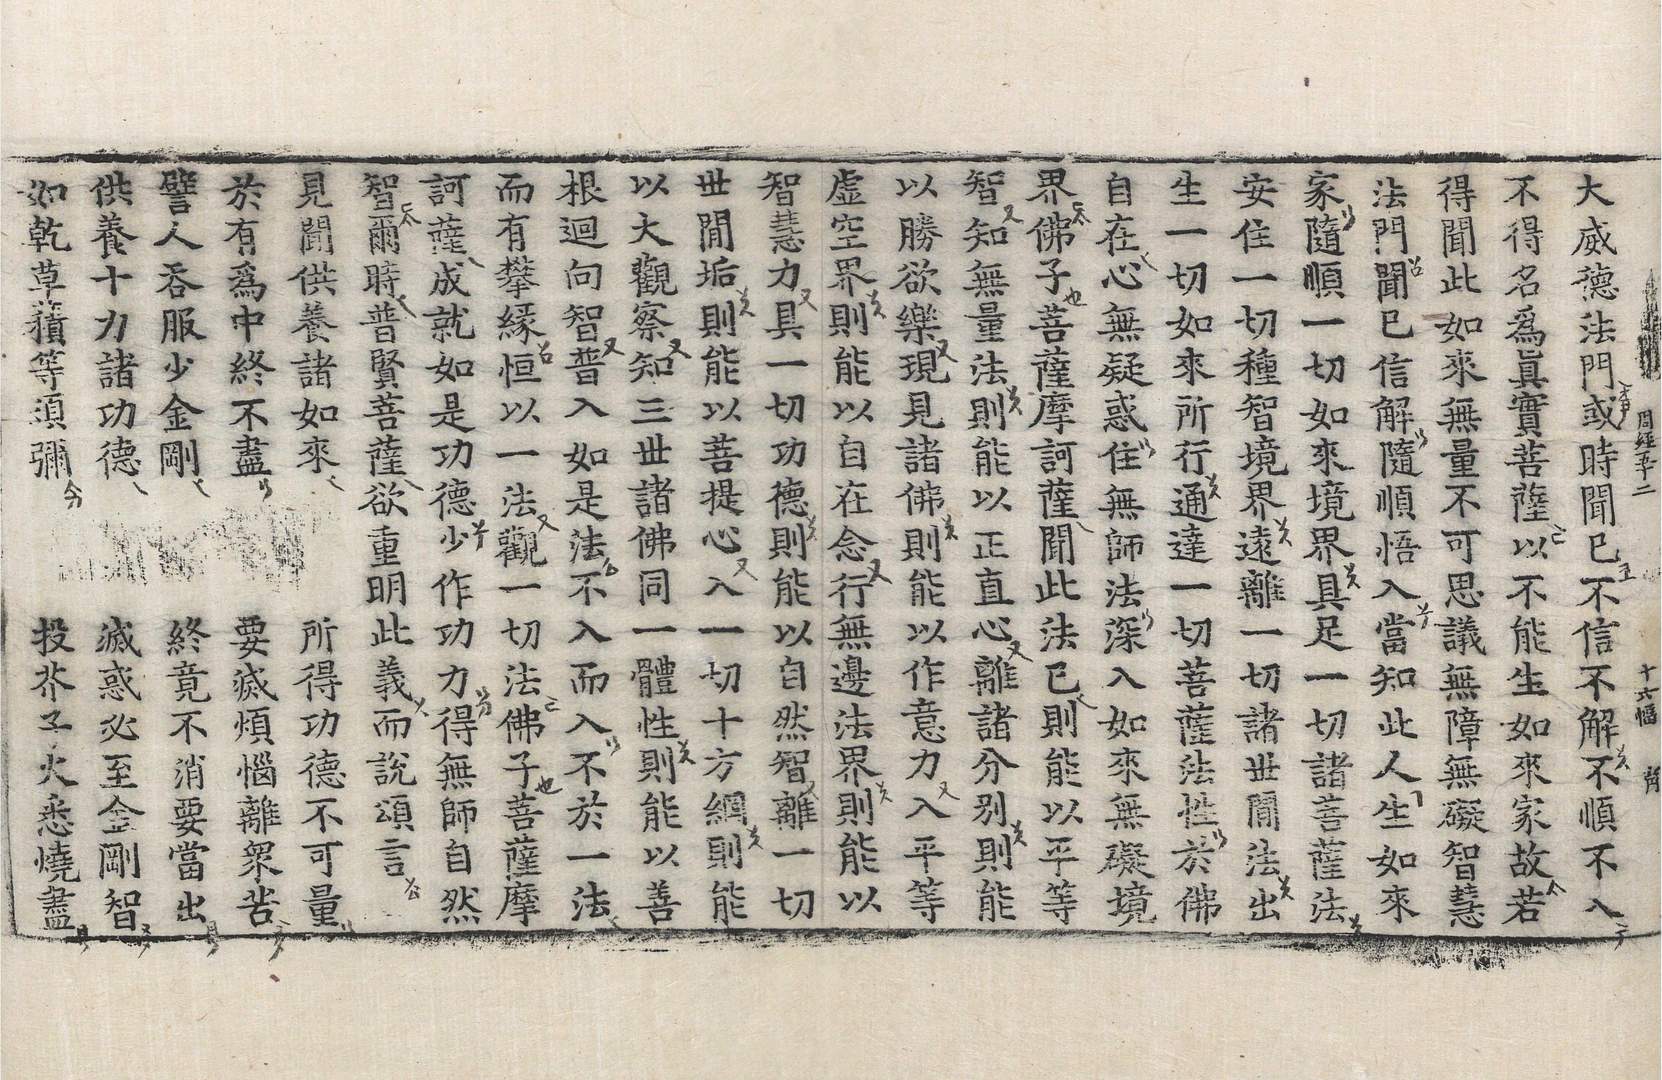 周經五十二 十六幅
大威德法門或時聞已不信不解不順不入
不得名爲眞實菩薩以不能生如來家故若
得聞此如來無量不可思議無障無礙智慧
法門聞已信解隨順悟入當知此人生如來
家隨順一切如來境界具足一切諸菩薩法
安住一切種智境界遠離一切諸世間法出
生一切如來所行通達一切菩薩法性於佛
自在心無疑惑住無師法深入如來無礙境
界佛子菩薩摩訶薩聞此法已則能以平等
智知無量法則能以正直心離諸分別則能
以勝欲樂現見諸佛則能以作意力入平等
虛空界則能以自在念行無邊法界則能以
智慧力具一切功德則能以自然智離一切
世間垢則能以菩提心入一切十方網則能
以大觀察知三世諸佛同一體性則能以善
根迴向智普入如是法不入而入不於一法
而有攀緣恒以一法觀一切法佛子菩薩摩
訶薩成就如是功德少作功力得無師自然
智爾時普賢菩薩欲重明此義而說頌言
見聞供養諸如來 所得功德不可量
於有爲中終不盡 要滅煩惱離衆苦
譬人吞服少金剛 終竟不消要當出
供養十力諸功德 滅惑必至金剛智
如乾草積等須彌 投芥子火悉燒盡